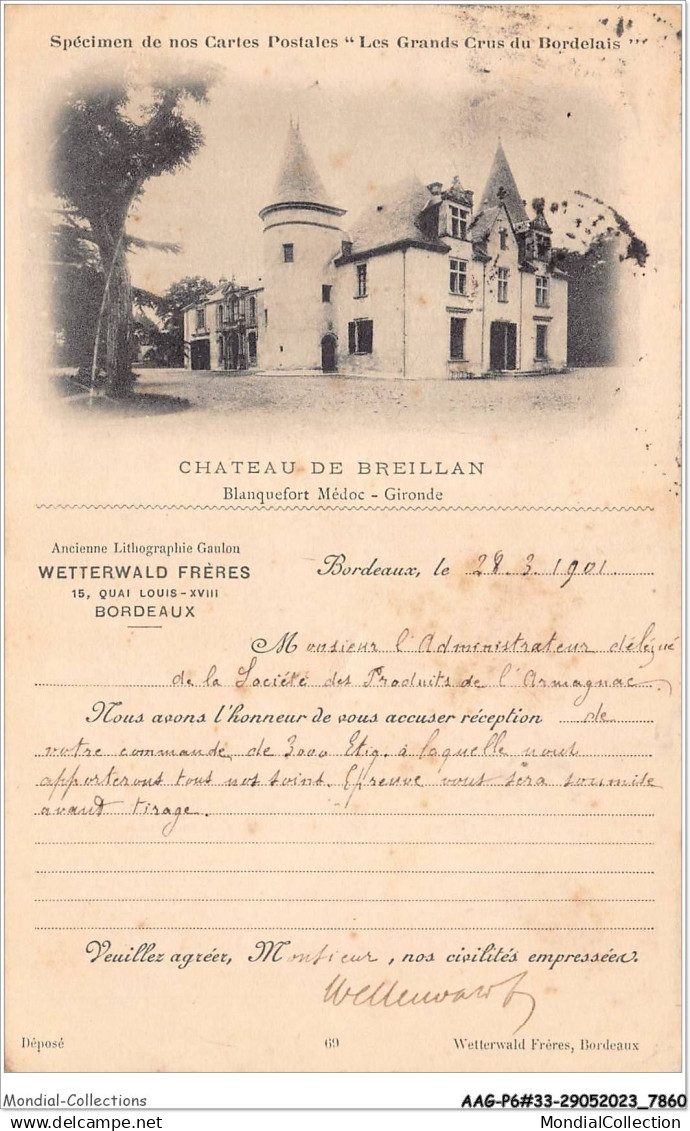 Spécimen de nos Cartes Postales “ Les Grands Crus du Bordelais ”
CHATEAU DE BREILLAN
Blanquefort Médoc - Gironde
Ancienne Lithographie Gaulon
WETTERWALD FRÈRES
15, QUAI LOUIS-XVIII
BORDEAUX
Bordeaux, le 28.3.1901
Monsieur l'Administrateur délégué
de la Société des Produits de l'Armagnac
Nous avons l'honneur de vous accuser réception de
votre commande de 3000 Etiq. à laquelle nous
apporterons tous nos soins. Epreuve vous sera soumise
avant tirage.
Veuillez agréer, Monsieur, nos civilités empressées.
Wetterwald
Déposé
69
Wetterwald Frères, Bordeaux
Mondial-Collections
AAG-P6#33-29052023_7860
MondialCollections.COM